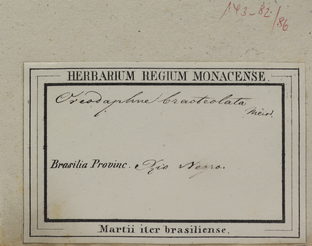 143-82/86
HERBARIUM REGIUM MONACENSE.
Oreodaphne bracteolata
Meisn.
Brasilia Provinc. Rio Negro.
Martii iter brasiliense.